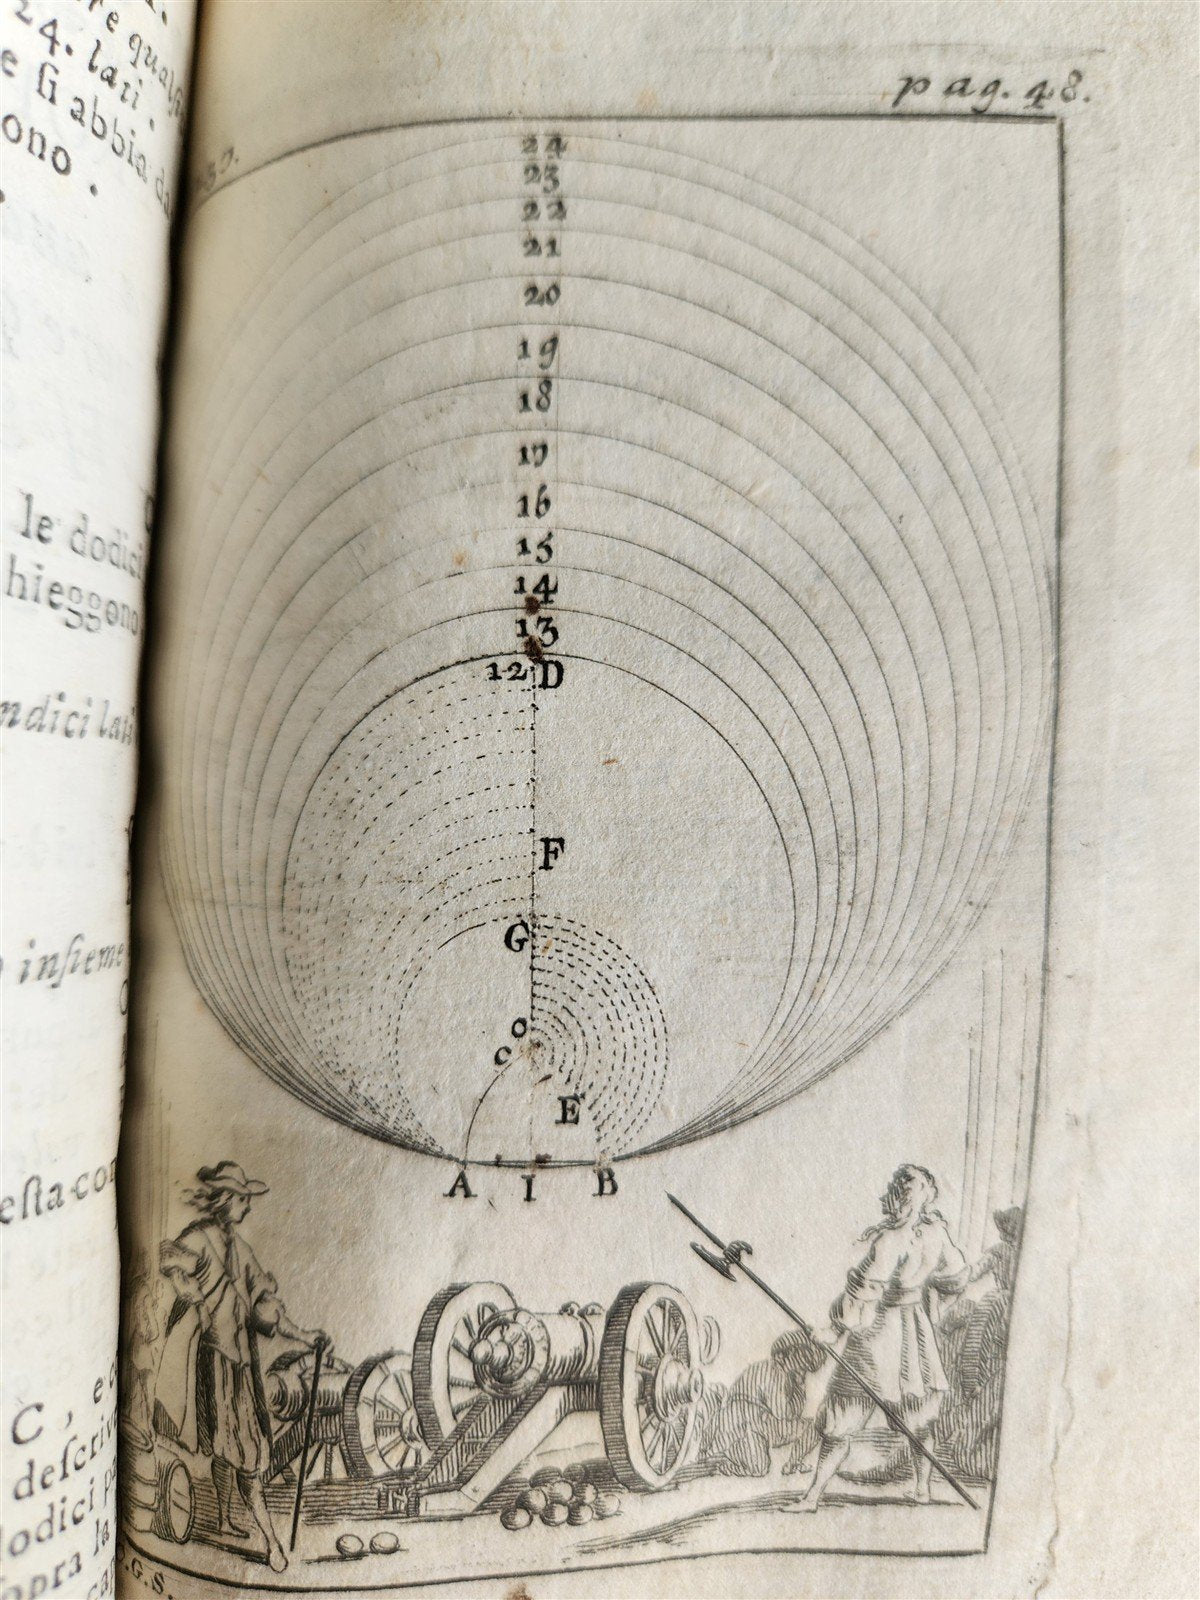 24. lati.
e ſi abbia
ono.
le dodici
hieggono
ndici lati
inſieme
eſta con
C, e
deſcriv
dodici
ſopra la
pag. 48.
24
23
22
21
20
19
18
17
16
15
14
13
12 D
F
G
o
c
E
A I B
G.S.